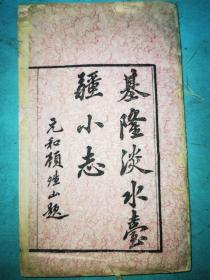 基隆淡水臺
疆小志
元和顧㷟山題